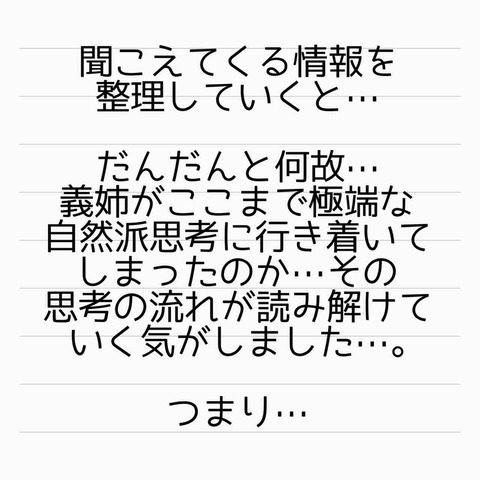 聞こえてくる情報を
整理していくと…
だんだんと何故…
義姉がここまで極端な
自然派思考に行き着いて
しまったのか…その
思考の流れが読み解けて
いく気がしました…。
つまり…